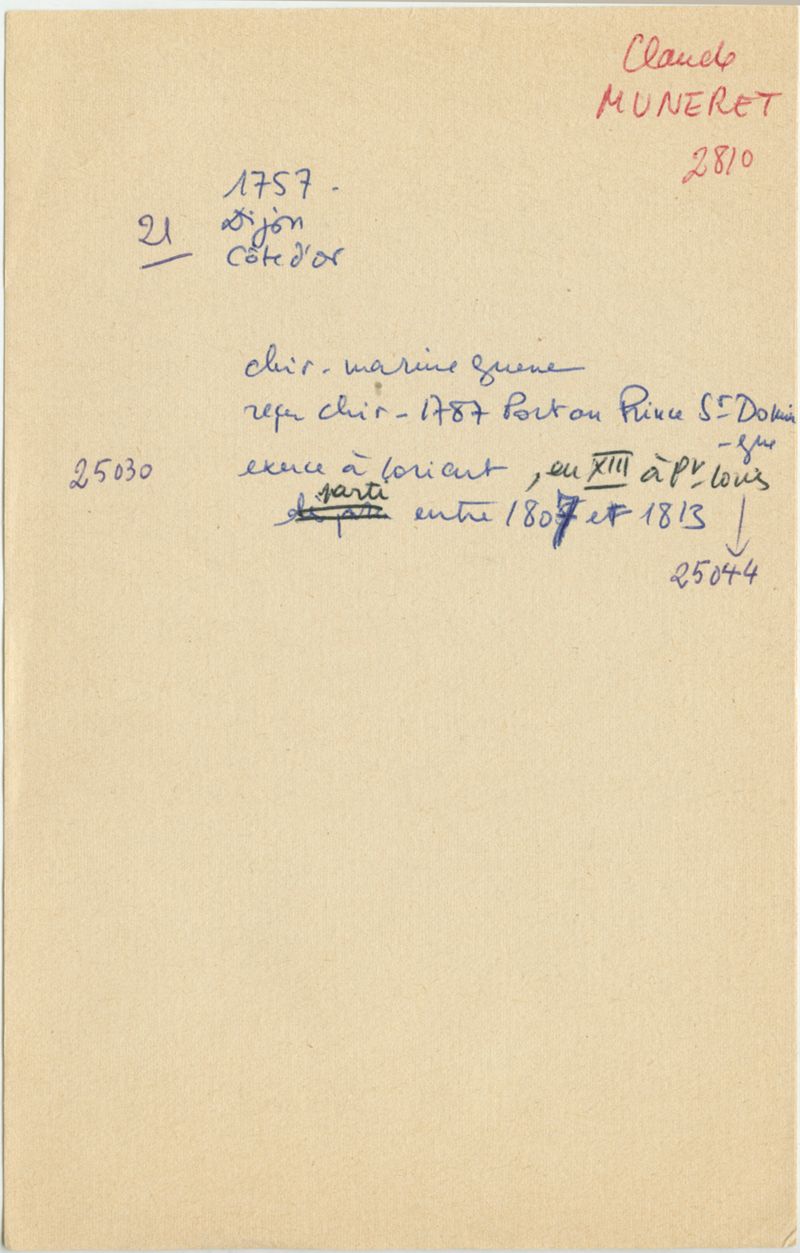 Claude
MUNERET
2810
1757.
21 Dijon
Côte d'or
chir. marine guerre
reçu chir - 1787 Port au Prince St Domin
-gue
25030 exerce à Lorient, en XIII à Pt-Louis
parti
entre 1807 et 1813
25044